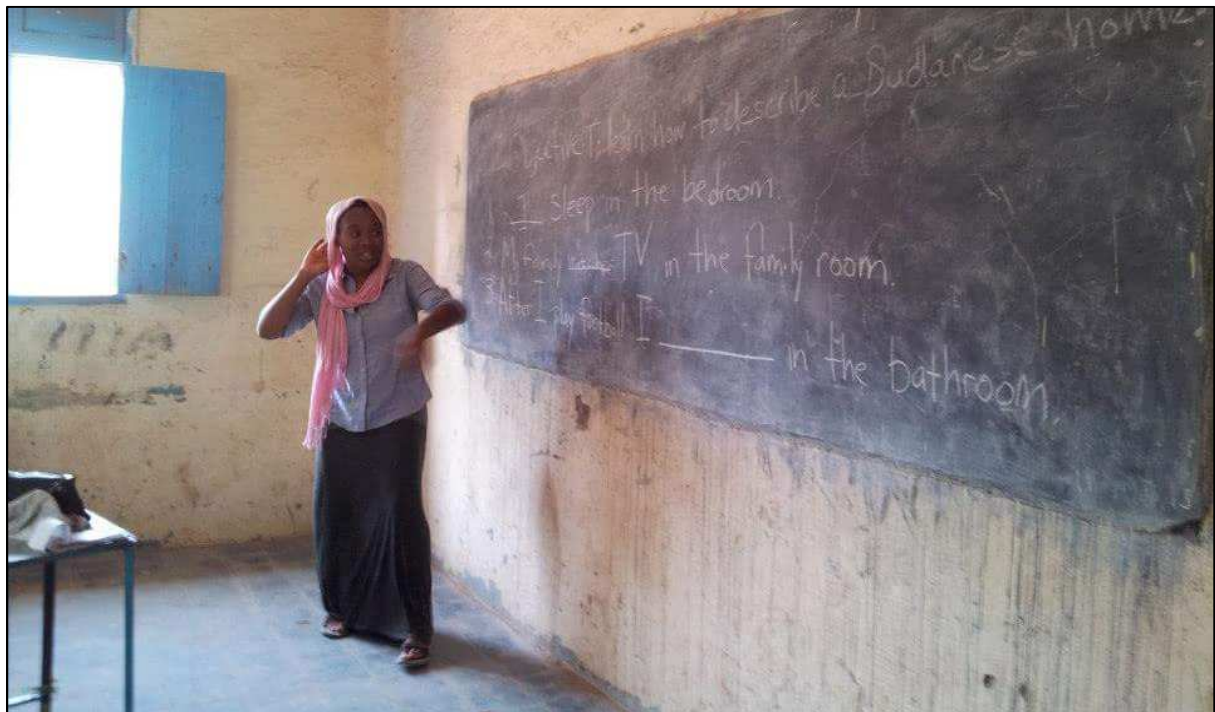 to learn how to describe a Sudanese home
1. I sleep in the bedroom.
My family TV in the family room.
3 After I play football I ________ in the bathroom.